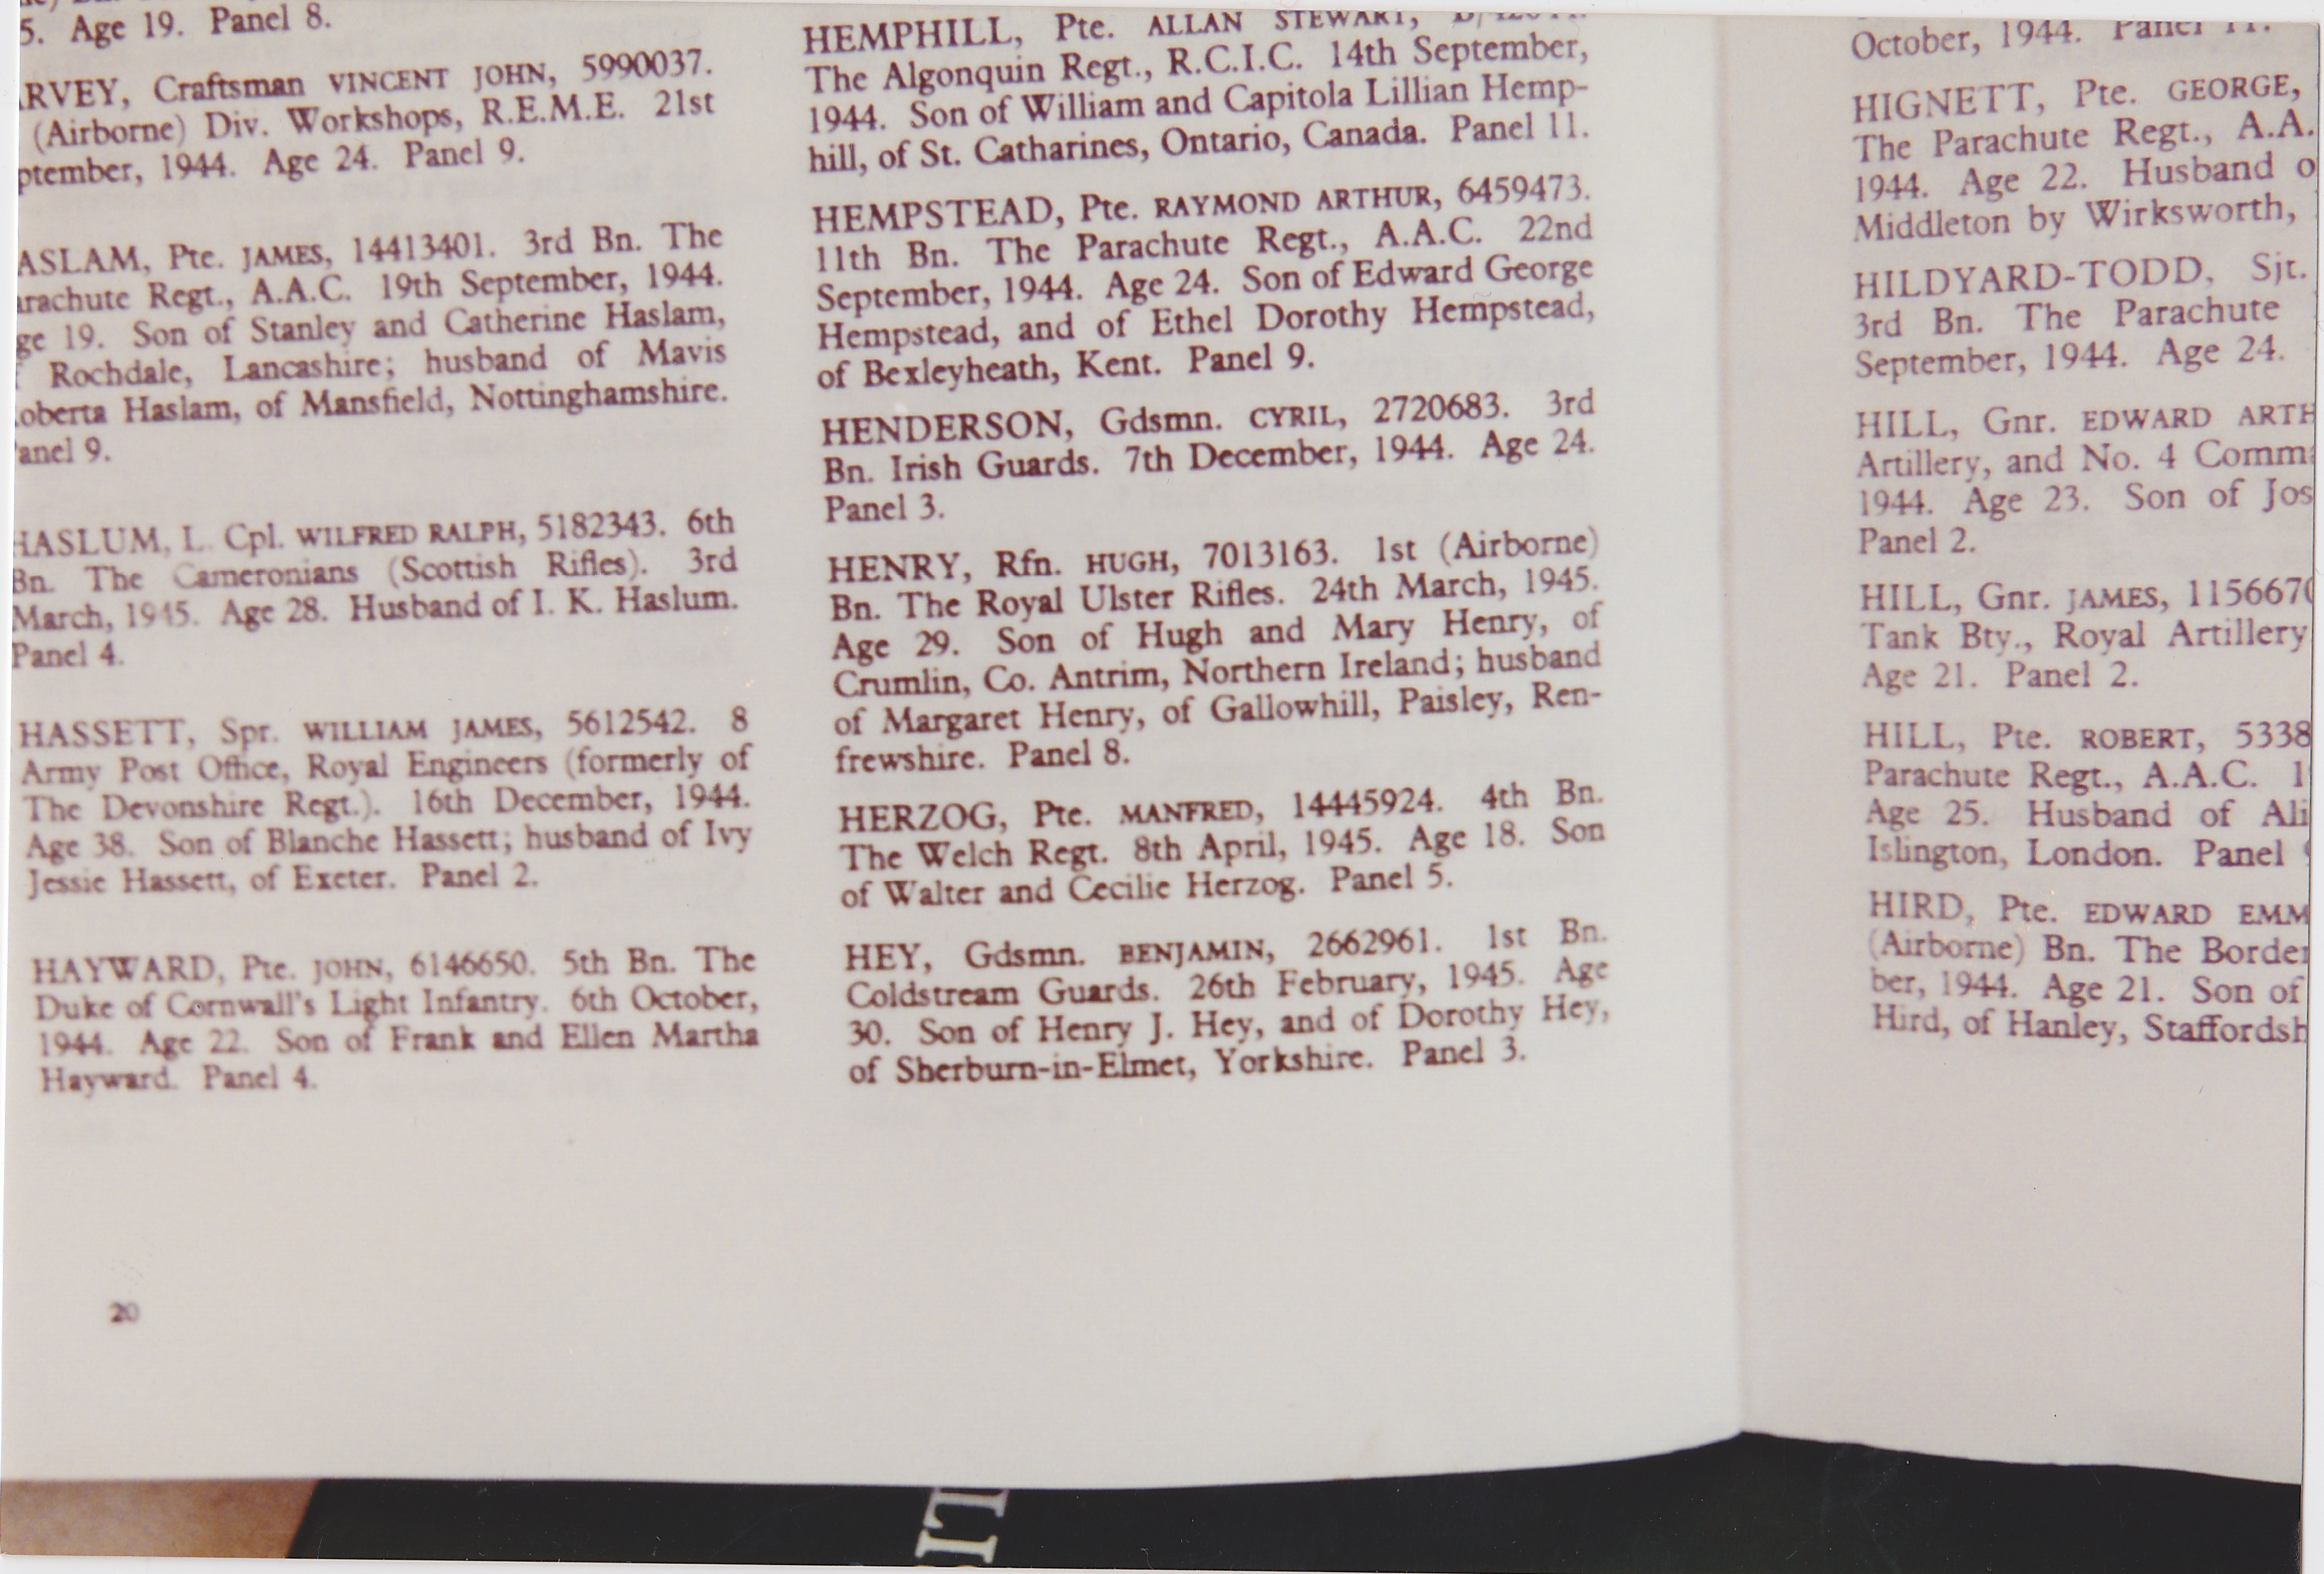 5. Age 19. Panel 8.
RVEY, Craftsman VINCENT JOHN, 5990037.
(Airborne) Div. Workshops, R.E.M.E. 21st
ptember, 1944. Age 24. Panel 9.
ASLAM, Pte. JAMES, 14413401. 3rd Bn. The
rachute Regt., A.A.C. 19th September, 1944.
ge 19. Son of Stanley and Catherine Haslam,
Rochdale, Lancashire; husband of Mavis
oberta Haslam, of Mansfield, Nottinghamshire.
anel 9.
HASLUM, L. Cpl. WILFRED RALPH, 5182343. 6th
Bn. The Cameronians (Scottish Rifles). 3rd
March, 1945. Age 28. Husband of I. K. Haslum.
Panel 4.
HASSETT, Spr. WILLIAM JAMES, 5612542. 8
Army Post Office, Royal Engineers (formerly of
The Devonshire Regt.). 16th December, 1944.
Age 38. Son of Blanche Hassett; husband of Ivy
Jessie Hassett, of Exeter. Panel 2.
HAYWARD, Pte. JOHN, 6146650. 5th Bn. The
Duke of Cornwall's Light Infantry. 6th October,
1944. Age 22. Son of Frank and Ellen Martha
Hayward. Panel 4.
20
HEMPHILL, Pte. ALLAN STEWART,
The Algonquin Regt., R.C.I.C. 14th September,
1944. Son of William and Capitola Lillian Hemp-
hill, of St. Catharines, Ontario, Canada. Panel 11.
HEMPSTEAD, Pte. RAYMOND ARTHUR, 6459473.
11th Bn. The Parachute Regt., A.A.C. 22nd
September, 1944. Age 24. Son of Edward George
Hempstead, and of Ethel Dorothy Hempstead,
of Bexleyheath, Kent. Panel 9.
HENDERSON, Gdsmn. CYRIL, 2720683. 3rd
Bn. Irish Guards. 7th December, 1944. Age 24.
Panel 3.
HENRY, Rfn. HUGH, 7013163. 1st (Airborne)
Bn. The Royal Ulster Rifles. 24th March, 1945.
Age 29. Son of Hugh and Mary Henry, of
Crumlin, Co. Antrim, Northern Ireland; husband
of Margaret Henry, of Gallowhill, Paisley, Ren-
frewshire. Panel 8.
HERZOG, Pte. MANFRED, 14445924. 4th Bn.
The Welch Regt. 8th April, 1945. Age 18. Son
of Walter and Cecilie Herzog. Panel 5.
HEY, Gdsmn. BENJAMIN, 2662961. 1st Bn.
Coldstream Guards. 26th February, 1945. Age
30. Son of Henry J. Hey, and of Dorothy Hey,
of Sherburn-in-Elmet, Yorkshire. Panel 3.
October, 1944. Panel 11.
HIGNETT, Pte. GEORGE,
The Parachute Regt., A.A.
1944. Age 22. Husband o
Middleton by Wirksworth,
HILDYARD-TODD, Sjt.
3rd Bn. The Parachute
September, 1944. Age 24.
HILL, Gnr. EDWARD ARTH
Artillery, and No. 4 Comm
1944. Age 23. Son of Jos
Panel 2.
HILL, Gnr. JAMES, 1156670
Tank Bty., Royal Artillery
Age 21. Panel 2.
HILL, Pte. ROBERT, 5338
Parachute Regt., A.A.C. 1
Age 25. Husband of Ali
Islington, London. Panel
HIRD, Pte. EDWARD EMM
(Airborne) Bn. The Border
ber, 1944. Age 21. Son of
Hird, of Hanley, Staffordsh